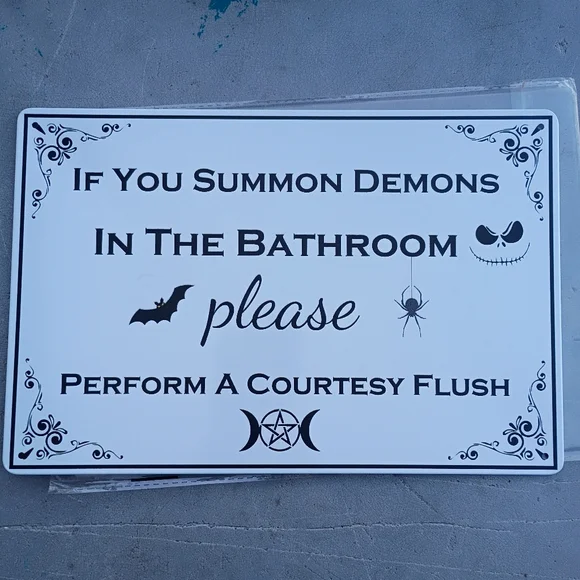 If You Summon Demons
In The Bathroom
please
Perform A Courtesy Flush